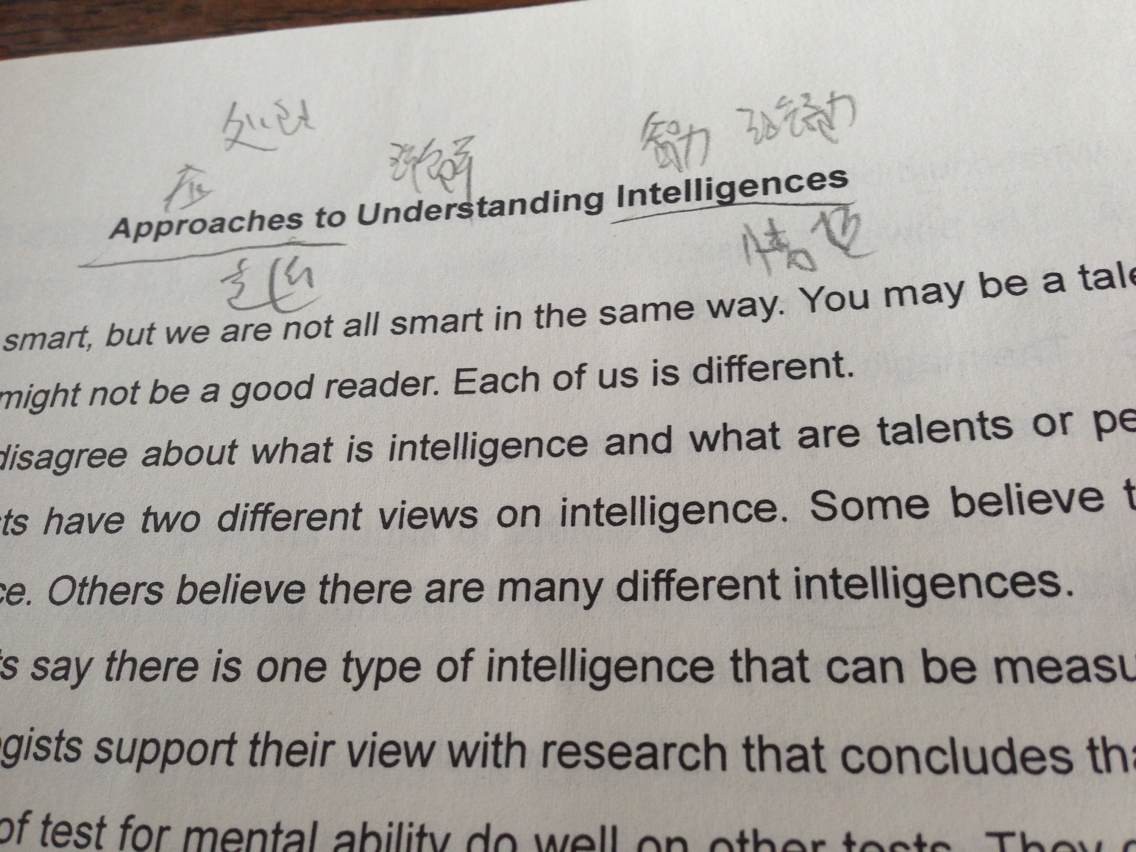 智力
Approaches to Understanding Intelligences
smart, but we are not all smart in the same way. You may be a tale
might not be a good reader. Each of us is different.
disagree about what is intelligence and what are talents or pe
ts have two different views on intelligence. Some believe t
ce. Others believe there are many different intelligences.
s say there is one type of intelligence that can be measu
gists support their view with research that concludes tha
of test for mental ability do well on other tests. They